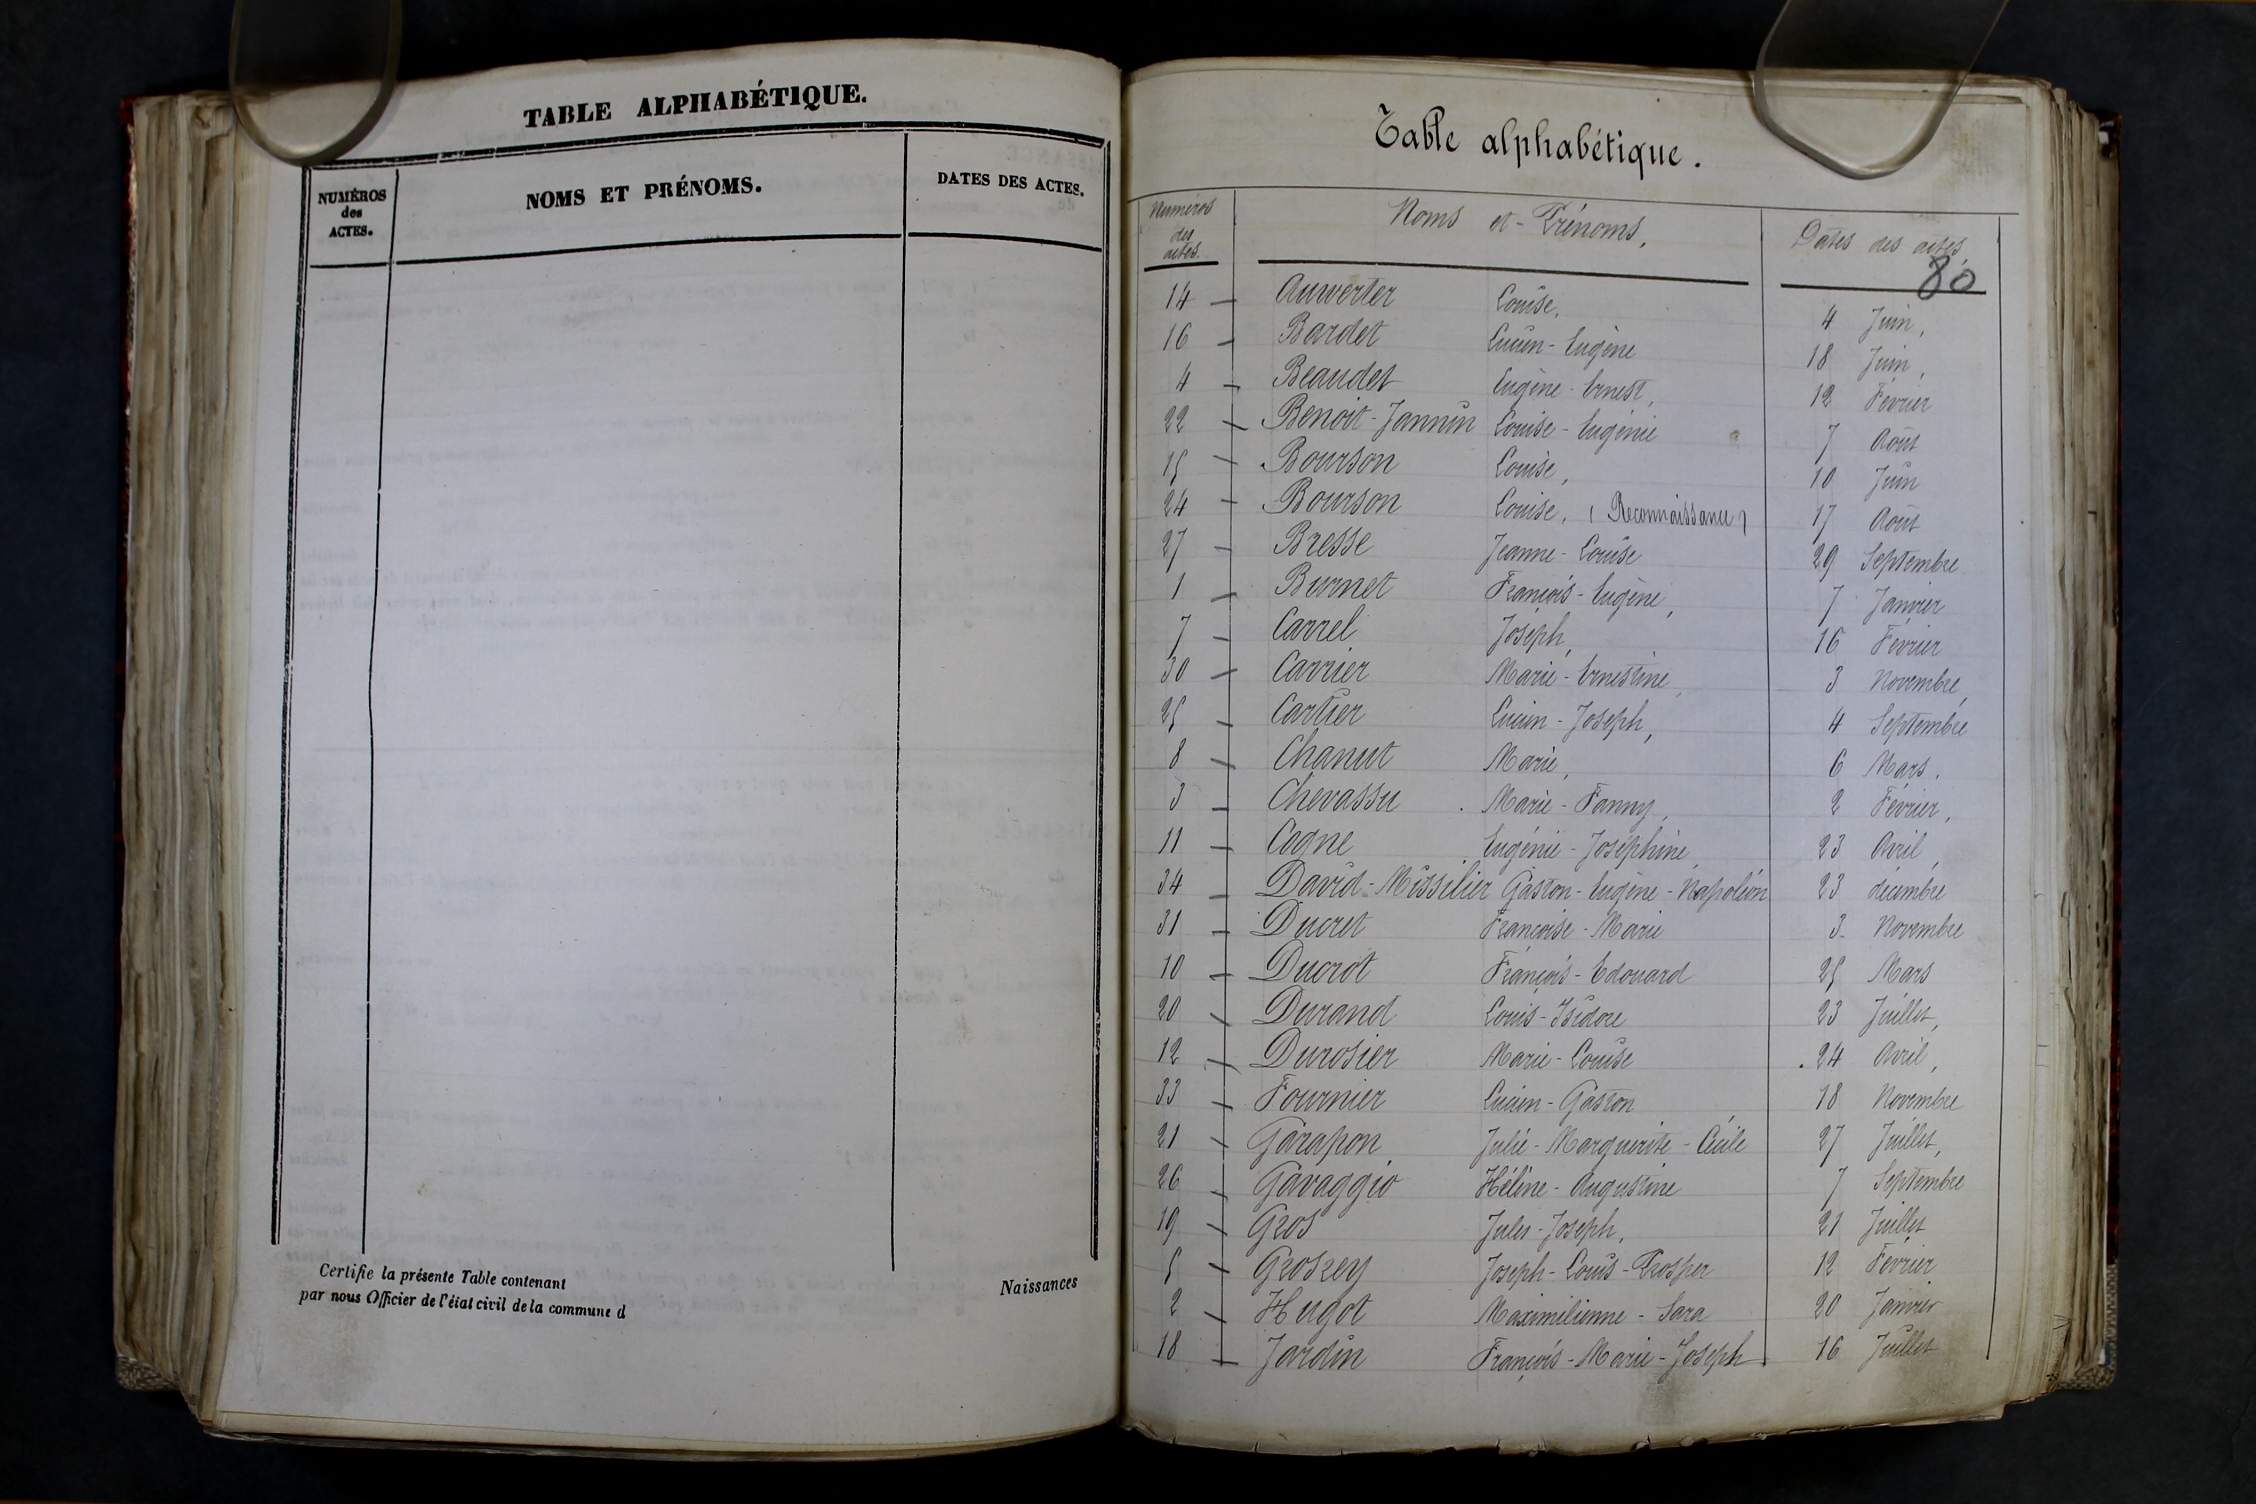 TABLE ALPHABÉTIQUE.
NUMÉROS des ACTES.
NOMS ET PRÉNOMS.
DATES DES ACTES.
Certifie la présente Table contenant
Naissances
par nous Officier de l'état civil de la commune d
Table alphabétique.
Numéros des actes.
Noms et Prénoms,
Dates des actes,
80
14 — Auwerter Louise, 4 Juin,
16 — Bardet Lucien-Eugène 18 Juin,
4 — Beaudet Eugène-Ernest, 12 Février
22 — Benoit-Jannin Louise-Eugénie 7 Août
15 — Bourson Louise, 10 Juin
24 — Bourson Louise, (Reconnaissance) 17 Août
27 — Bresse Jeanne-Louise 29 Septembre
1 — Burnet François-Eugène, 7 Janvier
7 — Carrel Joseph, 16 Février
30 — Carrier Marie-Ernestine, 3 Novembre,
25 — Cartier Lucien-Joseph, 4 Septembre
8 — Chanut Marie, 6 Mars.
3 — Chevassu Marie-Fanny, 2 Février,
11 — Cogne Eugénie-Joséphine, 23 Avril,
34 — David-Missilier Gaston-Eugène-Napoléon 23 décembre
31 — Ducret Françoise-Marie 3 Novembre
10 — Ducrot François-Edouard 25 Mars
20 — Durand Louis-Isidore 23 Juillet,
12 — Durosier Marie-Louise 24 Avril,
33 — Fournier Lucien-Gaston 18 Novembre
21 — Garapon Julie-Marguerite-Cécile 27 Juillet,
26 — Gavaggio Hélène-Augustine 7 Septembre
19 — Gros Jules-Joseph, 21 Juillet
5 — Grosrey Joseph-Louis-Prosper 12 Février
2 — Hugot Maximilienne-Sara 20 Janvier
18 — Jardin François-Marie-Joseph 16 Juillet